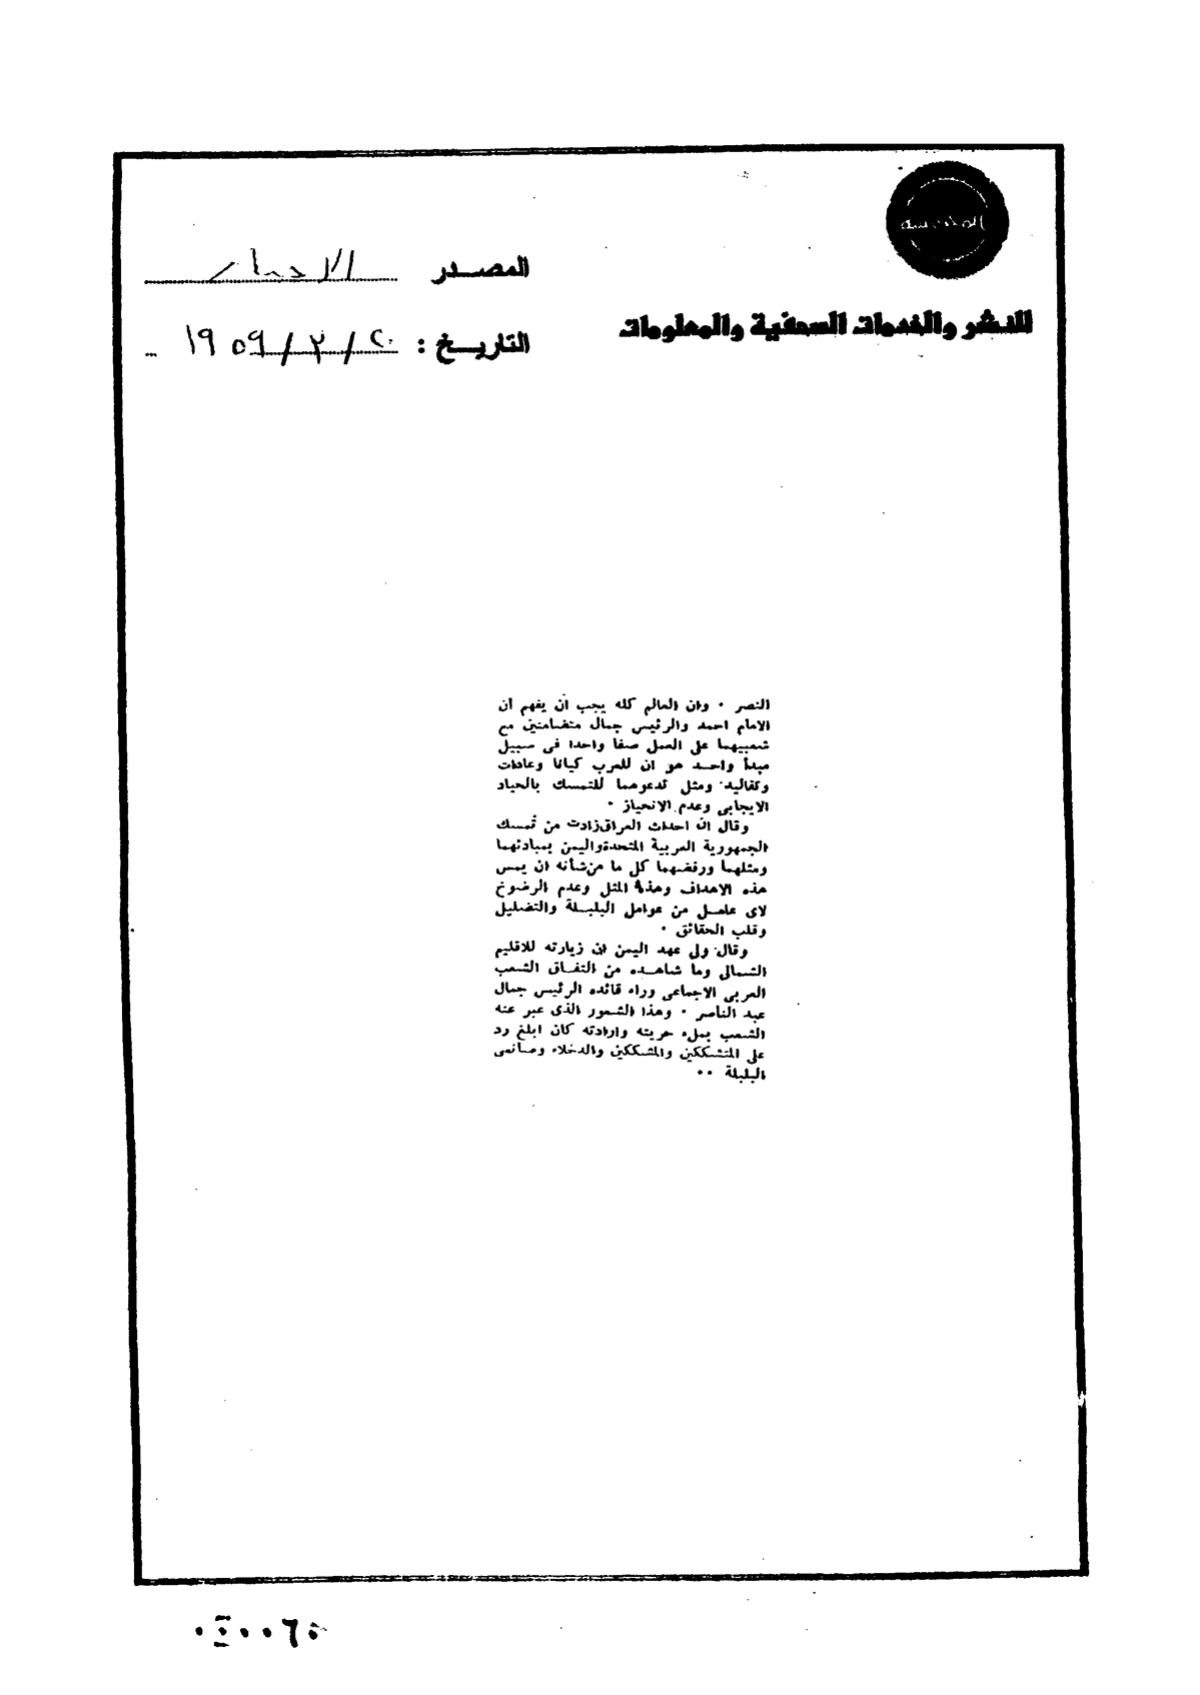 المصدر الاخبار
للنشر والخدمات الصحفية والمعلومات
التاريخ : ٢٠/٣/١٩٥٩
النصر ٠ وان العالم كله يجب أن يفهم ان
الامام احمد والرئيس جمال متضامنين مع
شعبيهما على العمل صفا واحدا فى سبيل
مبدأ واحد هو ان للعرب كيانا وعادات
وتقاليد ومثل تدعوهما للتمسك بالحياد
الايجابى وعدم الانحياز ٠
وقال ان احداث العراق زادت من تمسك
الجمهورية العربية المتحدة واليمن بمبادئهما
ومثلهما ورفضهما كل ما من شأنه ان يمس
هذه الاهداف وهذه المثل وعدم الرضوخ
لاى عامل من عوامل البلبلة والتضليل
وقلب الحقائق ٠
وقال ولى عهد اليمن ان زيارته للاقليم
الشمالى وما شاهده من التفاق الشعب
العربى الاجماعى وراء قائده الرئيس جمال
عبد الناصر ٠ وهذا الشعور الذى عبر عنه
الشعب بملء حريته وارادته كان ابلغ رد
على المتشككين والمشككين والدخلاء وصانعى
البلبلة ٠٠